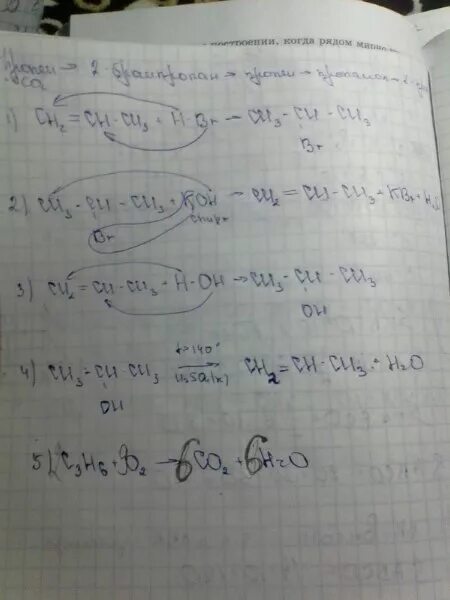 построении, когда рядом
пропен → 2-бромпропан → пропен → пропанол-2 →
CO2
1) CH2 = CH-CH3 + H-Br → CH3 - CH - CH3
Br
2) CH3 - CH - CH3 + KOH → CH2 = CH - CH3 + KBr + H2O
Br спирт
3) CH2 = CH - CH3 + H-OH → CH3 - CH - CH3
OH
4) CH3 - CH - CH3 t>140° H2SO4(к) → CH2 = CH - CH3 + H2O
OH
5) C3H6 + 9O2 → 6CO2 + 6H2O